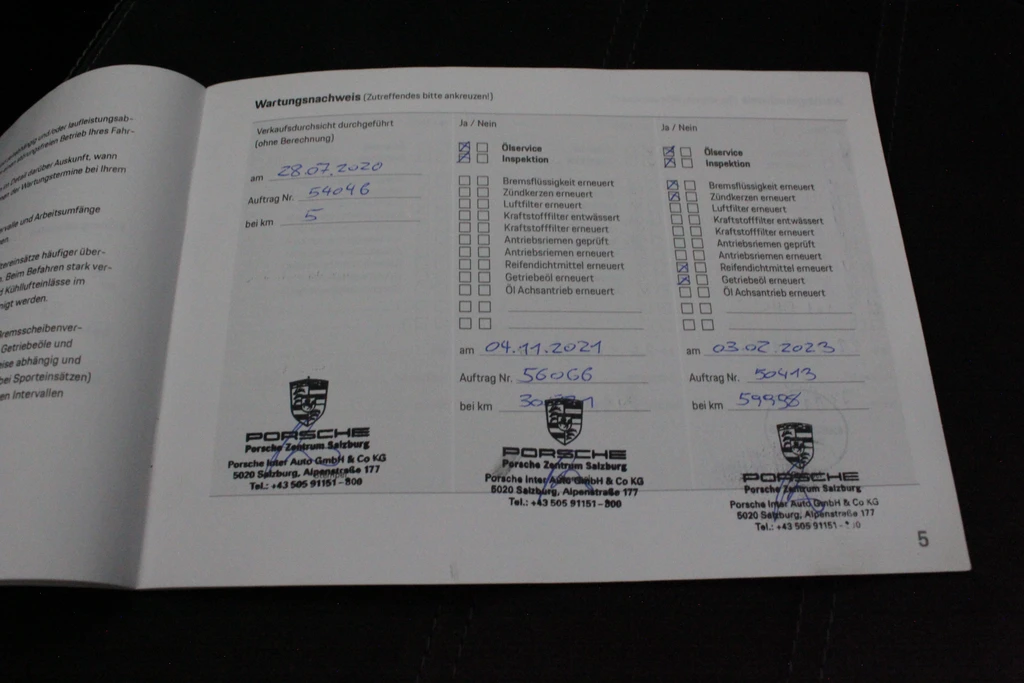 und/oder laufleistungsab-
freien Betrieb Ihres Fahr-
Detail darüber Auskunft, wann
der Wartungstermine bei Ihrem
und Arbeitsumfänge
häufiger über-
Beim Befahren stark ver-
Kühllufteinlässe im
werden.
Bremsscheibenver-
Getriebeöle und
abhängig und
bei Sporteinsätzen)
Intervallen
Wartungsnachweis (Zutreffendes bitte ankreuzen!)
Verkaufsdurchsicht durchgeführt
(ohne Berechnung)
am 28.07.2020
Auftrag Nr. 54046
bei km 5
PORSCHE
Porsche Zentrum Salzburg
Porsche Inter Auto GmbH & Co KG
5020 Salzburg, Alpenstraße 177
Tel.: +43 505 91151-800
Ja / Nein
Ölservice
Inspektion
Bremsflüssigkeit erneuert
Zündkerzen erneuert
Luftfilter erneuert
Kraftstofffilter entwässert
Kraftstofffilter erneuert
Antriebsriemen geprüft
Antriebsriemen erneuert
Reifendichtmittel erneuert
Getriebeöl erneuert
Öl Achsantrieb erneuert
am 04.11.2021
Auftrag Nr. 56066
bei km
PORSCHE
Porsche Zentrum Salzburg
Porsche Inter Auto GmbH & Co KG
5020 Salzburg, Alpenstraße 177
Tel.: +43 505 91151-800
Ja / Nein
Ölservice
Inspektion
Bremsflüssigkeit erneuert
Zündkerzen erneuert
Luftfilter erneuert
Kraftstofffilter entwässert
Kraftstofffilter erneuert
Antriebsriemen geprüft
Antriebsriemen erneuert
Reifendichtmittel erneuert
Getriebeöl erneuert
Öl Achsantrieb erneuert
am 03.02.2023
Auftrag Nr. 50413
bei km 59998
PORSCHE
Porsche Zentrum Salzburg
Porsche Inter Auto GmbH & Co KG
5020 Salzburg, Alpenstraße 177
Tel.: +43 505 91151-
5